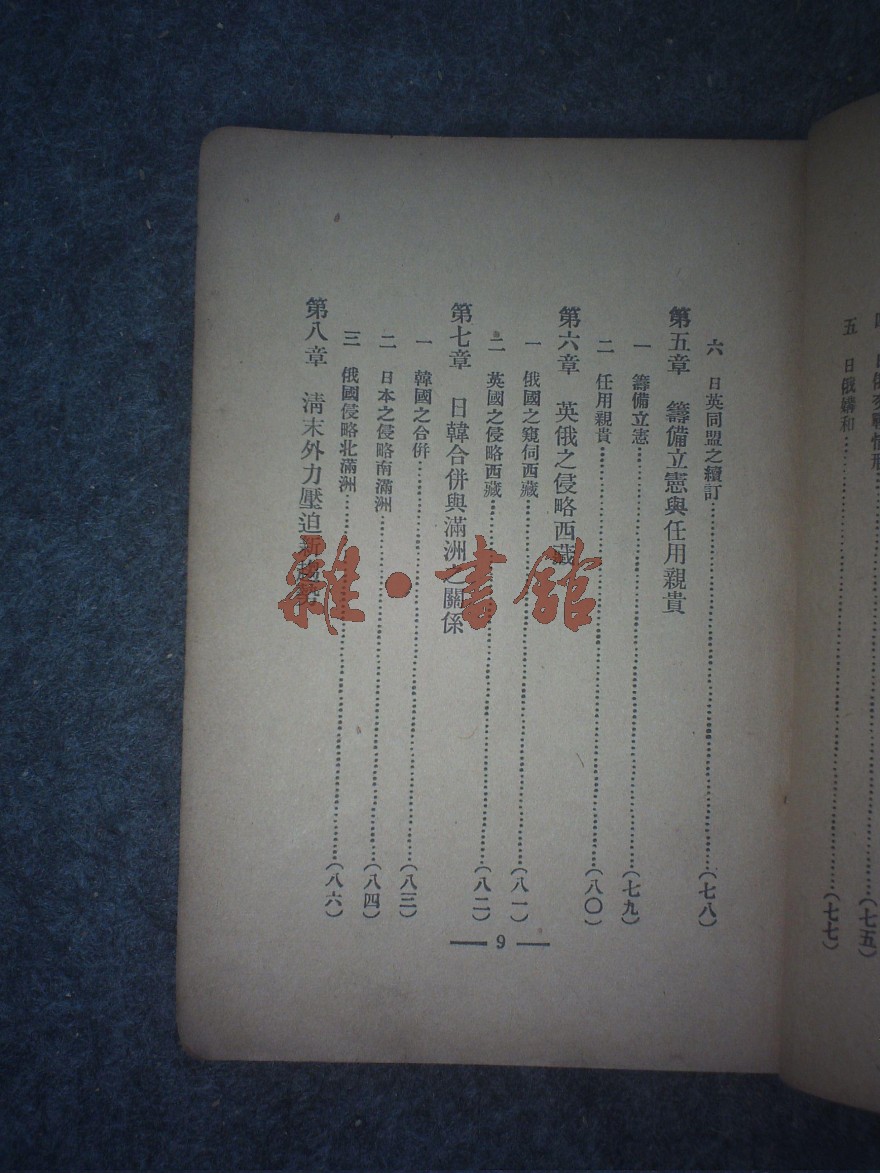 五 日俄媾和……(七七)
六 日英同盟之續訂……(七八)
第五章 籌備立憲與任用親貴
一 籌備立憲……(七九)
二 任用親貴……(八〇)
第六章 英俄之侵略西藏
一 俄國之窺伺西藏……(八一)
二 英國之侵略西藏……(八二)
第七章 日韓合併與滿洲之關係
一 韓國之合併……(八三)
二 日本之侵略南滿洲……(八四)
三 俄國侵略北滿洲……(八六)
第八章 清末外力壓迫新趨勢
9
雜·書館